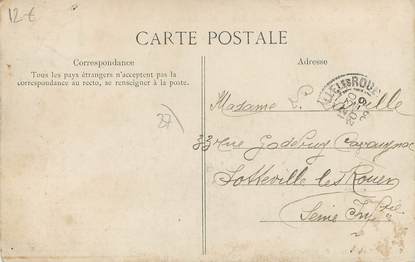 12-€
CARTE POSTALE
Correspondance
Tous les pays étrangers n'acceptent pas la
correspondance au recto, se renseigner à la poste.
Adresse
37
Madame
33 rue Godefroy Cavaignac
Sotteville les Rouen
Seine Infrie